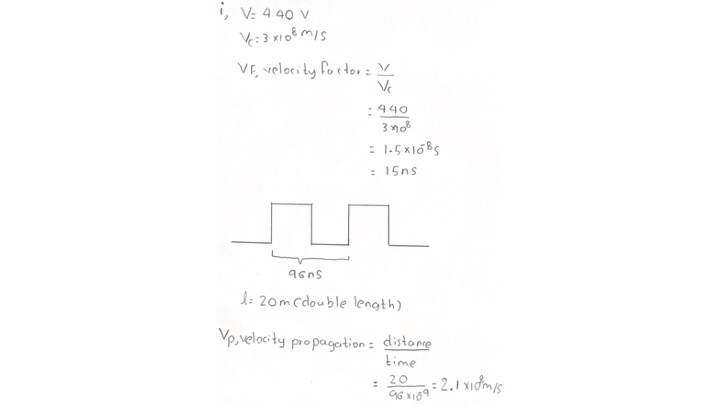 i, V= 440 V
Vc= 3 x10⁸ m/s
VF, velocity factor = V/Vc
= 440/3x10⁸
= 1.5x10⁻⁸s
= 15ns
96ns
l= 20m (double length)
Vp, velocity propagation = distance/time
= 20/96x10⁻⁹ = 2.1 x10⁸m/s